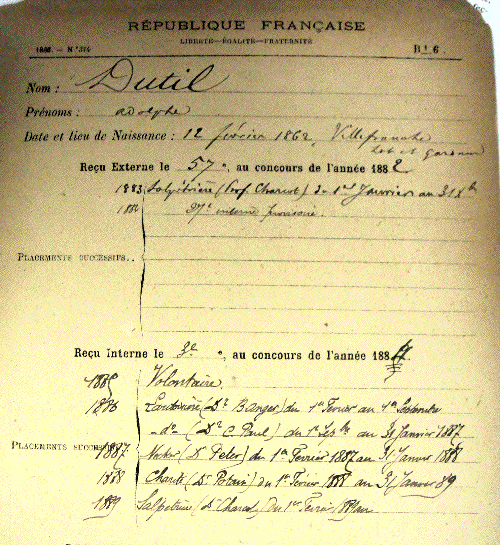 RÉPUBLIQUE FRANÇAISE
LIBERTÉ—ÉGALITÉ—FRATERNITÉ
1886. — N° 374 Bt 6.
Nom : Dutil
Prénoms : adolphe
Date et lieu de Naissance : 12 février 1862, Villefranche
Lot et garonne
Reçu Externe le 57 e, au concours de l'année 1882
1883 Salpêtrière (Prof Charcot) du 1er Janvier au 31 Xbre
interne provisoire.
PLACEMENTS SUCCESSIFS..
Reçu Interne le 3e e, au concours de l'année 1884
1885 Volontaire
1886 (Dr ) du 1er Fevrier au 1er Septembre
do (Dr C. Paul) du 1er Sepbre au 31 Janvier 1887
PLACEMENTS SUCCESSIFS 1887 Necker (Dr Peter) du 1er Fevrier 1887 au 31 Janvier 1888
1888 Charité (Dr Potain) du 1er Fevrier 1888 au 31 Janvier 89
1889 Salpetrière (Dr Charcot) du 1er Fevrier 1889 au